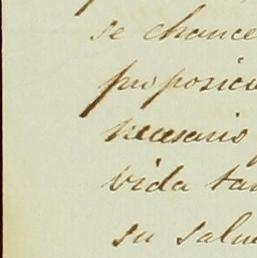 se chance
proposici
necesario
vida tan
su salu